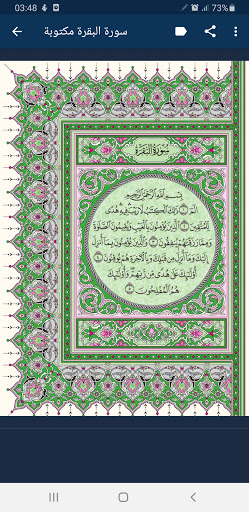 03:48
73%
سورة البقرة مكتوبة
سُورَةُ البَقَرَةِ
بِسْمِ اللَّهِ الرَّحْمَٰنِ الرَّحِيمِ
الٓمٓ ۝١ ذَٰلِكَ الْكِتَٰبُ لَا رَيْبَ ۛ فِيهِ ۛ هُدًى
لِّلْمُتَّقِينَ ۝٢ الَّذِينَ يُؤْمِنُونَ بِالْغَيْبِ وَيُقِيمُونَ الصَّلَوٰةَ
وَمِمَّا رَزَقْنَٰهُمْ يُنفِقُونَ ۝٣ وَالَّذِينَ يُؤْمِنُونَ بِمَآ أُنزِلَ
إِلَيْكَ وَمَآ أُنزِلَ مِن قَبْلِكَ وَبِالْءَاخِرَةِ هُمْ يُوقِنُونَ ۝٤
أُو۟لَٰٓئِكَ عَلَىٰ هُدًى مِّن رَّبِّهِمْ ۖ وَأُو۟لَٰٓئِكَ
هُمُ الْمُفْلِحُونَ ۝٥